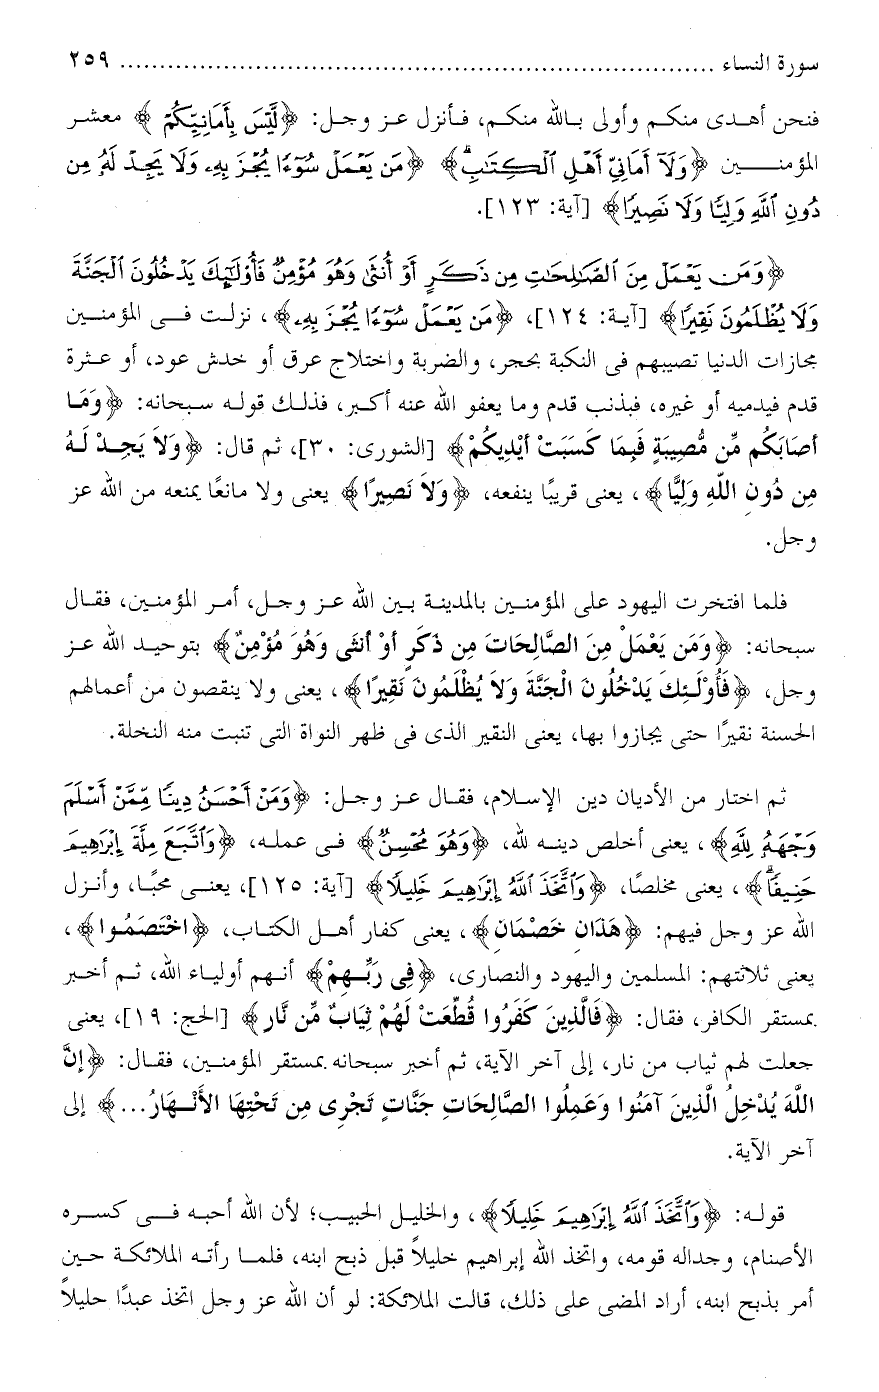 سورة النساء ........................................................................... ٢٥٩
فنحن أهدى منكم وأولى بالله منكم، فأنزل عز وجل: ﴿لَّيْسَ بِأَمَانِيِّكُمْ﴾ معشر
المؤمنين ﴿وَلَآ أَمَانِيِّ أَهْلِ ٱلْكِتَٰبِۗ﴾ ﴿مَن يَعْمَلْ سُوٓءًا يُجْزَ بِهِۦ وَلَا يَجِدْ لَهُۥ مِن
دُونِ ٱللَّهِ وَلِيًّا وَلَا نَصِيرًا﴾ [آية: ١٢٣].
﴿وَمَن يَعْمَلْ مِنَ ٱلصَّٰلِحَٰتِ مِن ذَكَرٍ أَوْ أُنثَىٰ وَهُوَ مُؤْمِنٌ فَأُو۟لَٰٓئِكَ يَدْخُلُونَ ٱلْجَنَّةَ
وَلَا يُظْلَمُونَ نَقِيرًا﴾ [آية: ١٢٤]، ﴿مَن يَعْمَلْ سُوٓءًا يُجْزَ بِهِۦ﴾، نزلت فى المؤمنين
مجازات الدنيا تصيبهم فى النكبة بحجر، والضربة واختلاج عرق أو خدش عود، أو عثرة
قدم فيدميه أو غيره، فبذنب قدم وما يعفو الله عنه أكبر، فذلك قوله سبحانه: ﴿وَمَا
أصَابَكُم مِّن مُّصِيبَةٍ فَبِمَا كَسَبَتْ أيْدِيكُمْ﴾ [الشورى: ٣٠]، ثم قال: ﴿وَلاَ يَجِدْ لَهُ
مِن دُونِ اللَّهِ وَلِيًّا﴾، يعنى قريبًا ينفعه، ﴿وَلاَ نَصِيرًا﴾ يعنى ولا مانعًا يمنعه من الله عز
وجل.
فلما افتخرت اليهود على المؤمنين بالمدينة بين الله عز وجل، أمر المؤمنين، فقال
سبحانه: ﴿وَمَن يَعْمَلْ مِنَ الصَّالِحَاتَ مِن ذَكَرٍ أوْ أنثَى وَهُوَ مُؤْمِنٌ﴾ بتوحيد الله عز
وجل، ﴿فَأُوْلَـئِكَ يَدْخُلُونَ الْجَنَّةَ وَلاَ يُظْلَمُونَ نَقِيرًا﴾، يعنى ولا ينقصون من أعمالهم
الحسنة نقيرًا حتى يجازوا بها، يعنى النقير الذى فى ظهر النواة التى تنبت منه النخلة.
ثم اختار من الأديان دين الإسلام، فقال عز وجل: ﴿وَمَنْ أَحْسَنُ دِينًا مِّمَّنْ أَسْلَمَ
وَجْهَهُۥ لِلَّهِ﴾، يعنى أخلص دينه لله، ﴿وَهُوَ مُحْسِنٌ﴾ فى عمله، ﴿وَٱتَّبَعَ مِلَّةَ إِبْرَٰهِيمَ
حَنِيفًاۗ﴾، يعنى مخلصًا، ﴿وَٱتَّخَذَ ٱللَّهُ إِبْرَٰهِيمَ خَلِيلًا﴾ [آية: ١٢٥]، يعنى محبًا، وأنزل
الله عز وجل فيهم: ﴿هَذَان خَصْمَان﴾، يعنى كفار أهل الكتاب، ﴿اخْتَصَمُوا﴾،
يعنى ثلاثتهم: المسلمين واليهود والنصارى، ﴿فِى رَبِّهِمْ﴾ أنهم أولياء الله، ثم أخبر
بمستقر الكافر، فقال: ﴿فَالَّذِينَ كَفَرُوا قُطِّعَتْ لَهُمْ ثِيَابٌ مِّن نَّار﴾ [الحج: ١٩]، يعنى
جعلت لهم ثياب من نار، إلى آخر الآية، ثم أخبر سبحانه بمستقر المؤمنين، فقال: ﴿إنَّ
اللَّهَ يُدْخِلُ الَّذِينَ آمَنُوا وَعَمِلُوا الصَّالِحَاتِ جَنَّاتٍ تَجْرِى مِن تَحْتِهَا الأَنْهَارُ...﴾ إلى
آخر الآية.
قوله: ﴿وَٱتَّخَذَ ٱللَّهُ إِبْرَٰهِيمَ خَلِيلًا﴾، والخليل الحبيب؛ لأن الله أحبه فى كسره
الأصنام، وجداله قومه، واتخذ الله إبراهيم خليلاً قبل ذبح ابنه، فلما رأته الملائكة حين
أمر بذبح ابنه، أراد المضى على ذلك، قالت الملائكة: لو أن الله عز وجل اتخذ عبدًا خليلاً